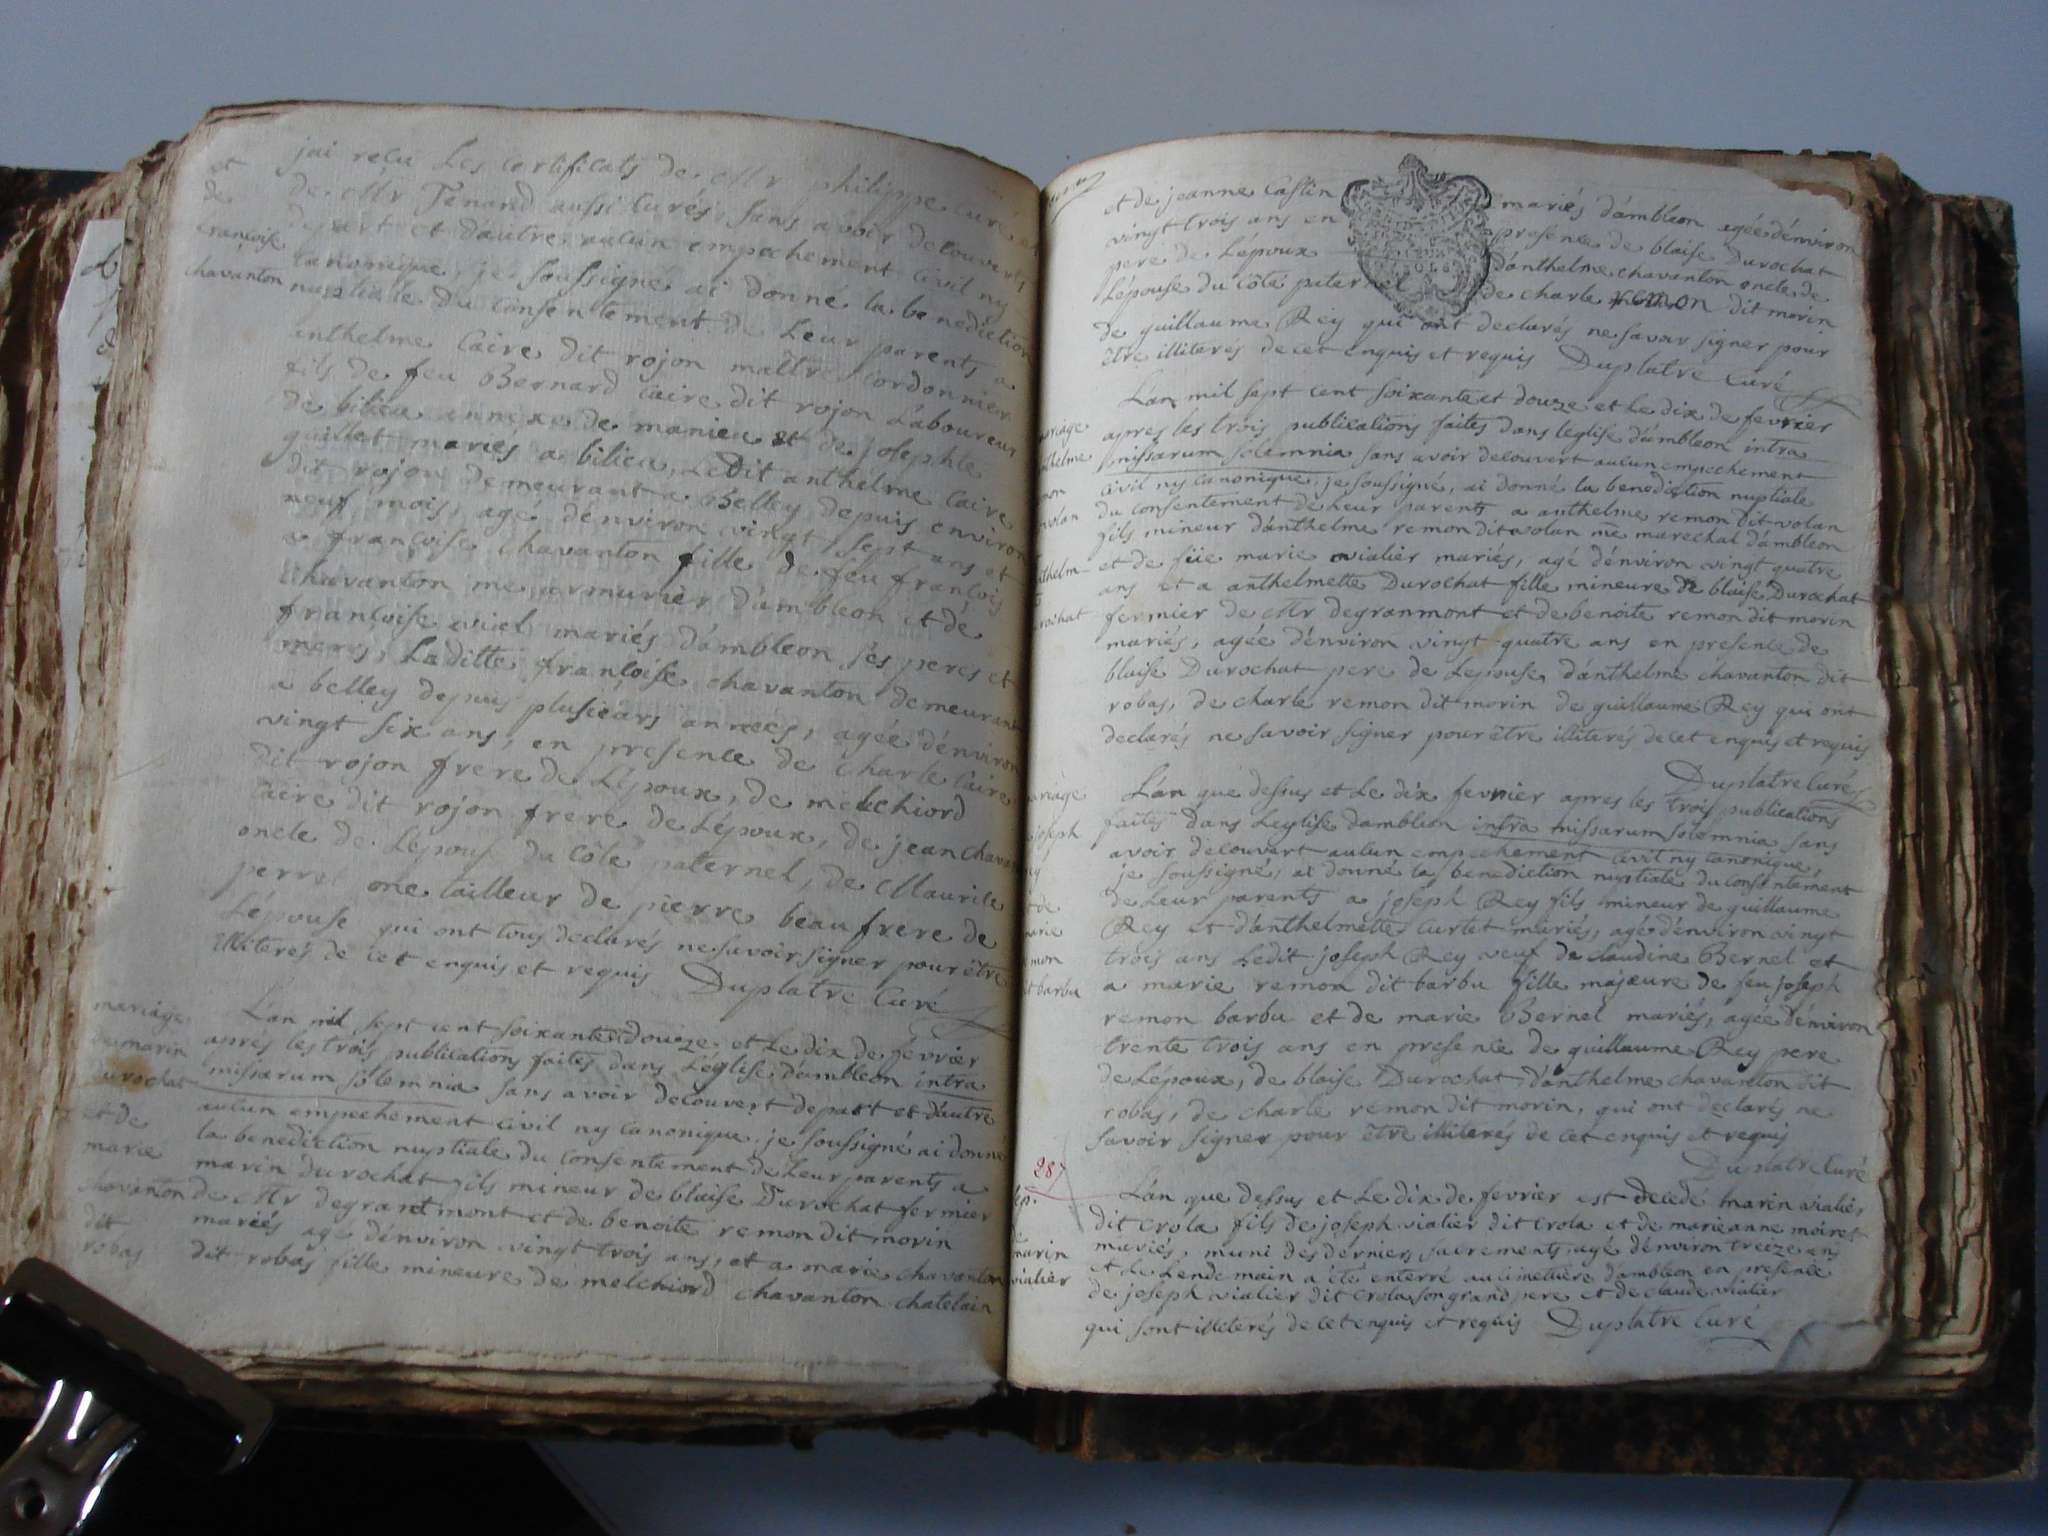 et
de
françoise
chavanton
jai reçu Les certificats de Mr philippe Curé et
de Mr Tenand aussi Curés, sans avoir decouverts
depart et d'autre aucun empechement Civil ny
Canonique, je soussigné ai donné la benediction
nuptiale du Consentement de Leur parents a
anthelme Caire dit rojon maître Cordonnier
fils de feu Bernard Caire dit rojon Laboureur
de bilieu annexe de manieu et de josephte
guillet mariés a bilieu, Ledit anthelme Caire
dit rojon demeurant a Belley depuis environ
neuf mois, agé d'énviron vingt sept ans et
a françoise Chavanton fille de feu françois
Chavanton me armurier d'ambleon et de
françoise viel mariés d'ambleon ses peres et
meres, Laditte françoise chavanton demeurant
a belley depuis plusieurs années, agée d'énviron
vingt six ans, en presence de Charle Caire
dit rojon frere de L'époux, de melchiord
Caire dit rojon frere de L'époux, de jean chavan
oncle de L'épouse du Côté paternel, de Maurice
perret me tailleur de pierre beau frere de
L'épouse qui ont tous declarés ne savoir signer pour être
illiterés de cet enquis et requis Duplatre Curé
mariage
de marin
durochat
et de
marie
chavanton
dit
robas
L'an mil sept cent soixante et douze et Le dix de fevrier
aprés les trois publications faites dans L'église d'ambleon intra
missarum solemnia sans avoir decouvert depart et d'autre
aucun empechement Civil ny Canonique je soussigné ai donné
la benediction nuptiale du Consentement de Leur parents a
marin durochat fils mineur de blaise Durochat fermier
de Mr degrantmont et de benoite remon dit morin
mariés agé d'énviron vingt trois ans, et a marie chavanton
dit robas fille mineure de melchiord chavanton chatelain
et de jeanne Caslin mariés d'ambleon agée d'énviron
vingt trois ans en presence de blaise Durochat
pere de L'époux d'anthelme chavanton oncle de
L'épouse du Côté paternel de charle remon dit morin
de guillaume Rey qui ont declarés ne savoir signer pour
être illiterés de cet enquis et requis Duplatre Curé
ariage
thelme
mon
volan
nthelm
rochat
L'an mil sept cent soixante et douze et Le dix de fevrier
apres les trois publications faites dans l'eglise d'ambleon intra
missarum solemnia sans avoir decouvert aucun empechement
Civil ny Canonique, je soussigné, ai donné la benediction nuptiale
du Consentement de Leur parents a anthelme remon dit volan
fils mineur d'anthelme remon dit volan me marechal d'ambleon
et de marie vialier mariés, agé d'énviron vingt quatre
ans et a anthelmette Durochat fille mineure de blaise Durochat
fermier de Mr degranmont et de benoite remon dit morin
mariés, agée d'énviron vingt quatre ans en presence de
blaise Durochat pere de Lepouse, d'anthelme chavanton dit
robas, de charle remon dit morin de guillaume Rey qui ont
declarés ne savoir signer pour être illiterés de cet enquis et requis
Duplatre Curé
ariage
joseph
ey
et de
marie
remon
it barbu
L'an que dessus et Le dix fevrier apres les trois publications
faites dans Leglise d'ambleon intra missarum solemnia sans
avoir decouvert aucun empechement Civil ny Canonique,
je soussigné, ai donné la benediction nuptiale du Consentement
de Leur parents a joseph Rey fils mineur de guillaume
Rey et d'anthelmette Curtet mariés, agé d'énviron vingt
trois ans Ledit joseph Rey veuf de claudine Bernel et
a marie remon dit barbu fille majeure de feu joseph
remon barbu et de marie Bernel mariés, agée d'énviron
trente trois ans en presence de guillaume Rey pere
de L'époux, de blaise Durochat, d'anthelme chavanton dit
robas, de charle remon dit morin, qui ont declarés ne
savoir signer pour être illiterés de cet enquis et requis
Duplatre Curé
287
sep.
de
marin
vialier
L'an que dessus et Le dix de fevrier est decedé marin vialier
dit crola fils de joseph vialier dit crola et de marieanne moiret
mariés, muni des derniers sacrements, agé d'énviron treize ans
et Le Lendemain a été enterré au cimetière d'ambleon en presence
de joseph vialier dit crola son grand pere et de claude vialier
qui sont illiterés de cet enquis et requis Duplatre Curé